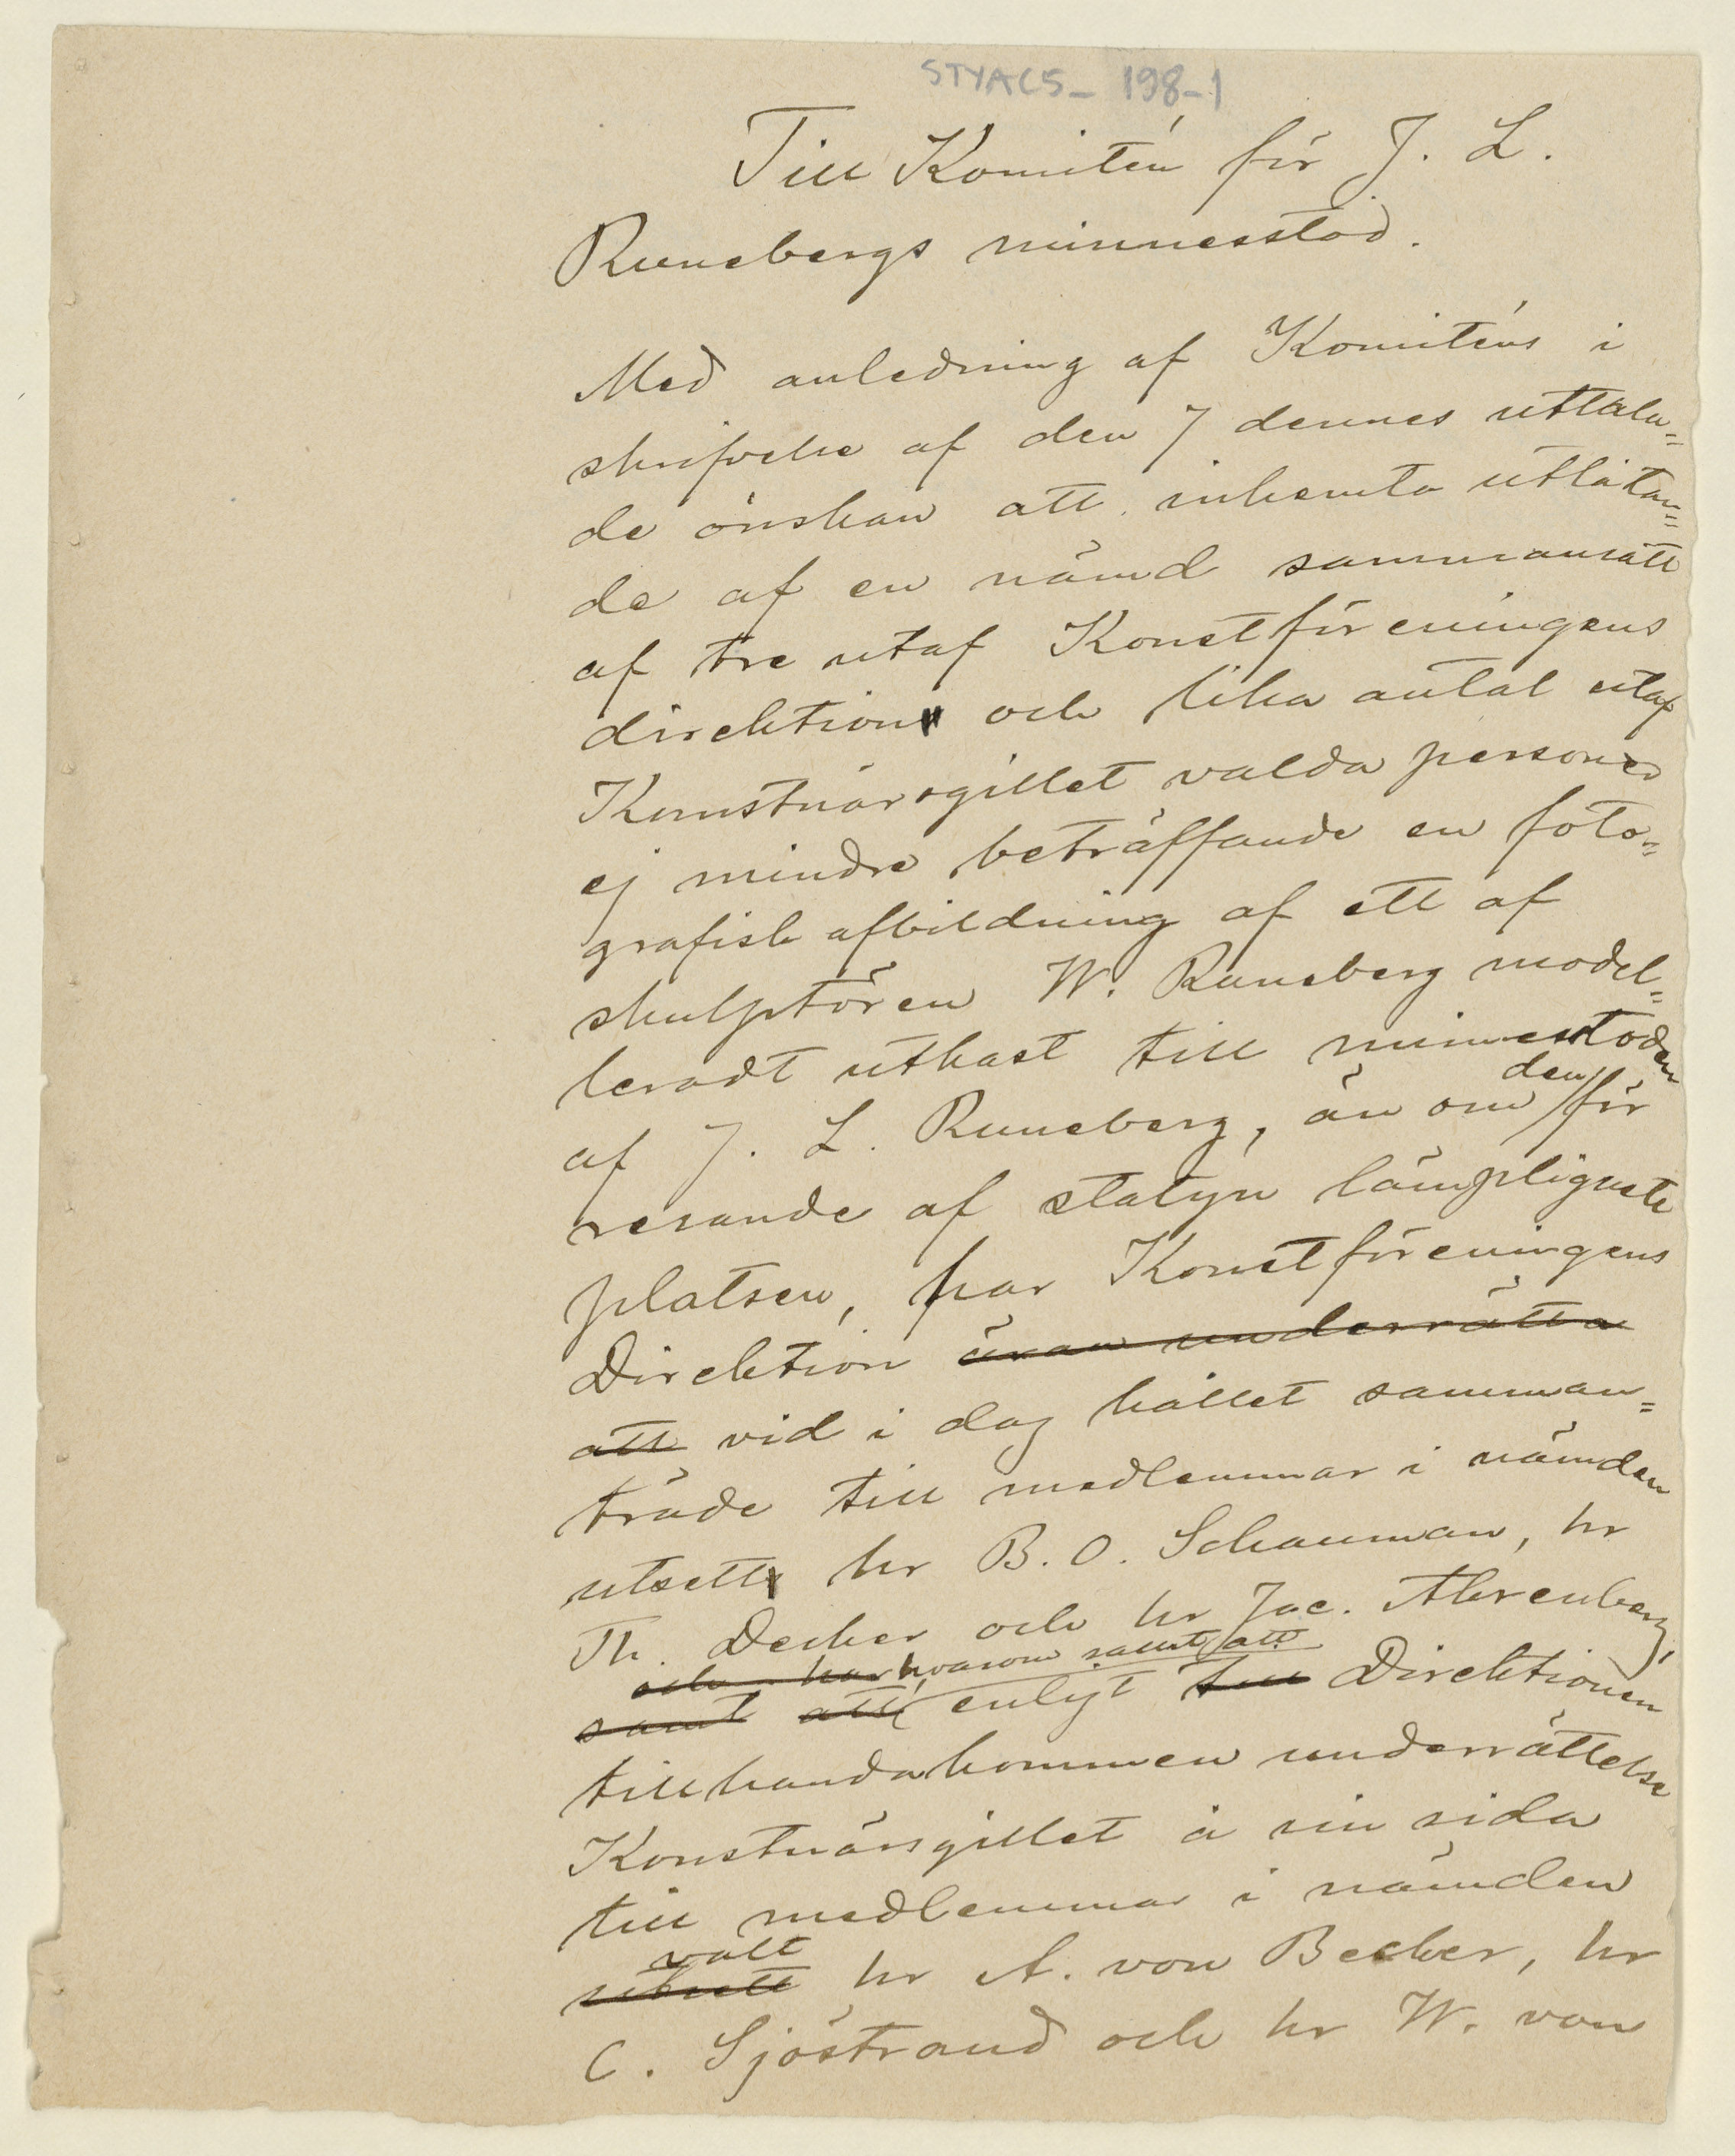 STYAC5_ 198-1
Till Komitén för J. L.
Runebergs minnesstod.
Med anledning af Komiténs i
skrifvelse af den 7 dennes uttala=
de önskan att inhemta utlåtan=
de af en nämd sammansatt
af tre utaf Konstföreningens
direktion och lika antal utaf
Konstnärsgillet valda personer
ej mindre beträffande en foto=
grafisk afbildning af ett af
skulptören W. Runeberg model=
leradt utkast till minnesstoden
af J. L. Runeberg, än om den för
resande af statyn lämpligaste
platsen, har Konstföreningens
Direktion äran underrätta
att vid i dag hållet samman=
träde till medlemmar i nämden
utsett hr B. O. Schauman, hr
Th. Decker och hr Jac. Ahrenberg,
och har hvarom samt att
samt att enligt till Direktionen
tillhandakommen underrättelse
Konstnärsgillet å sin sida
till medlemmar i nämden
valt
utsett hr A. von Becker, hr
C. Sjöstrand och hr W. von